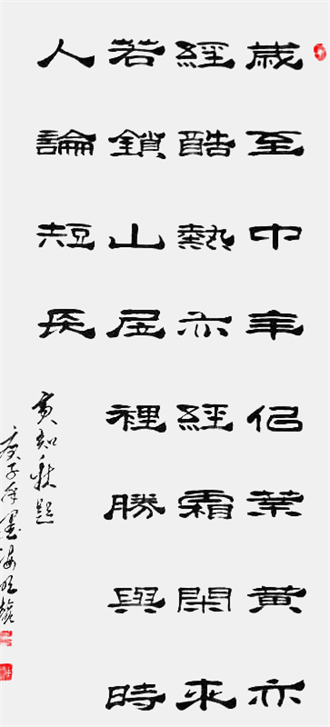 歲至中年佀葉黃亦
經酷熱亦經霜閑來
若鎖山居裡勝與時
人論短長
知秋題
庚子年墨海